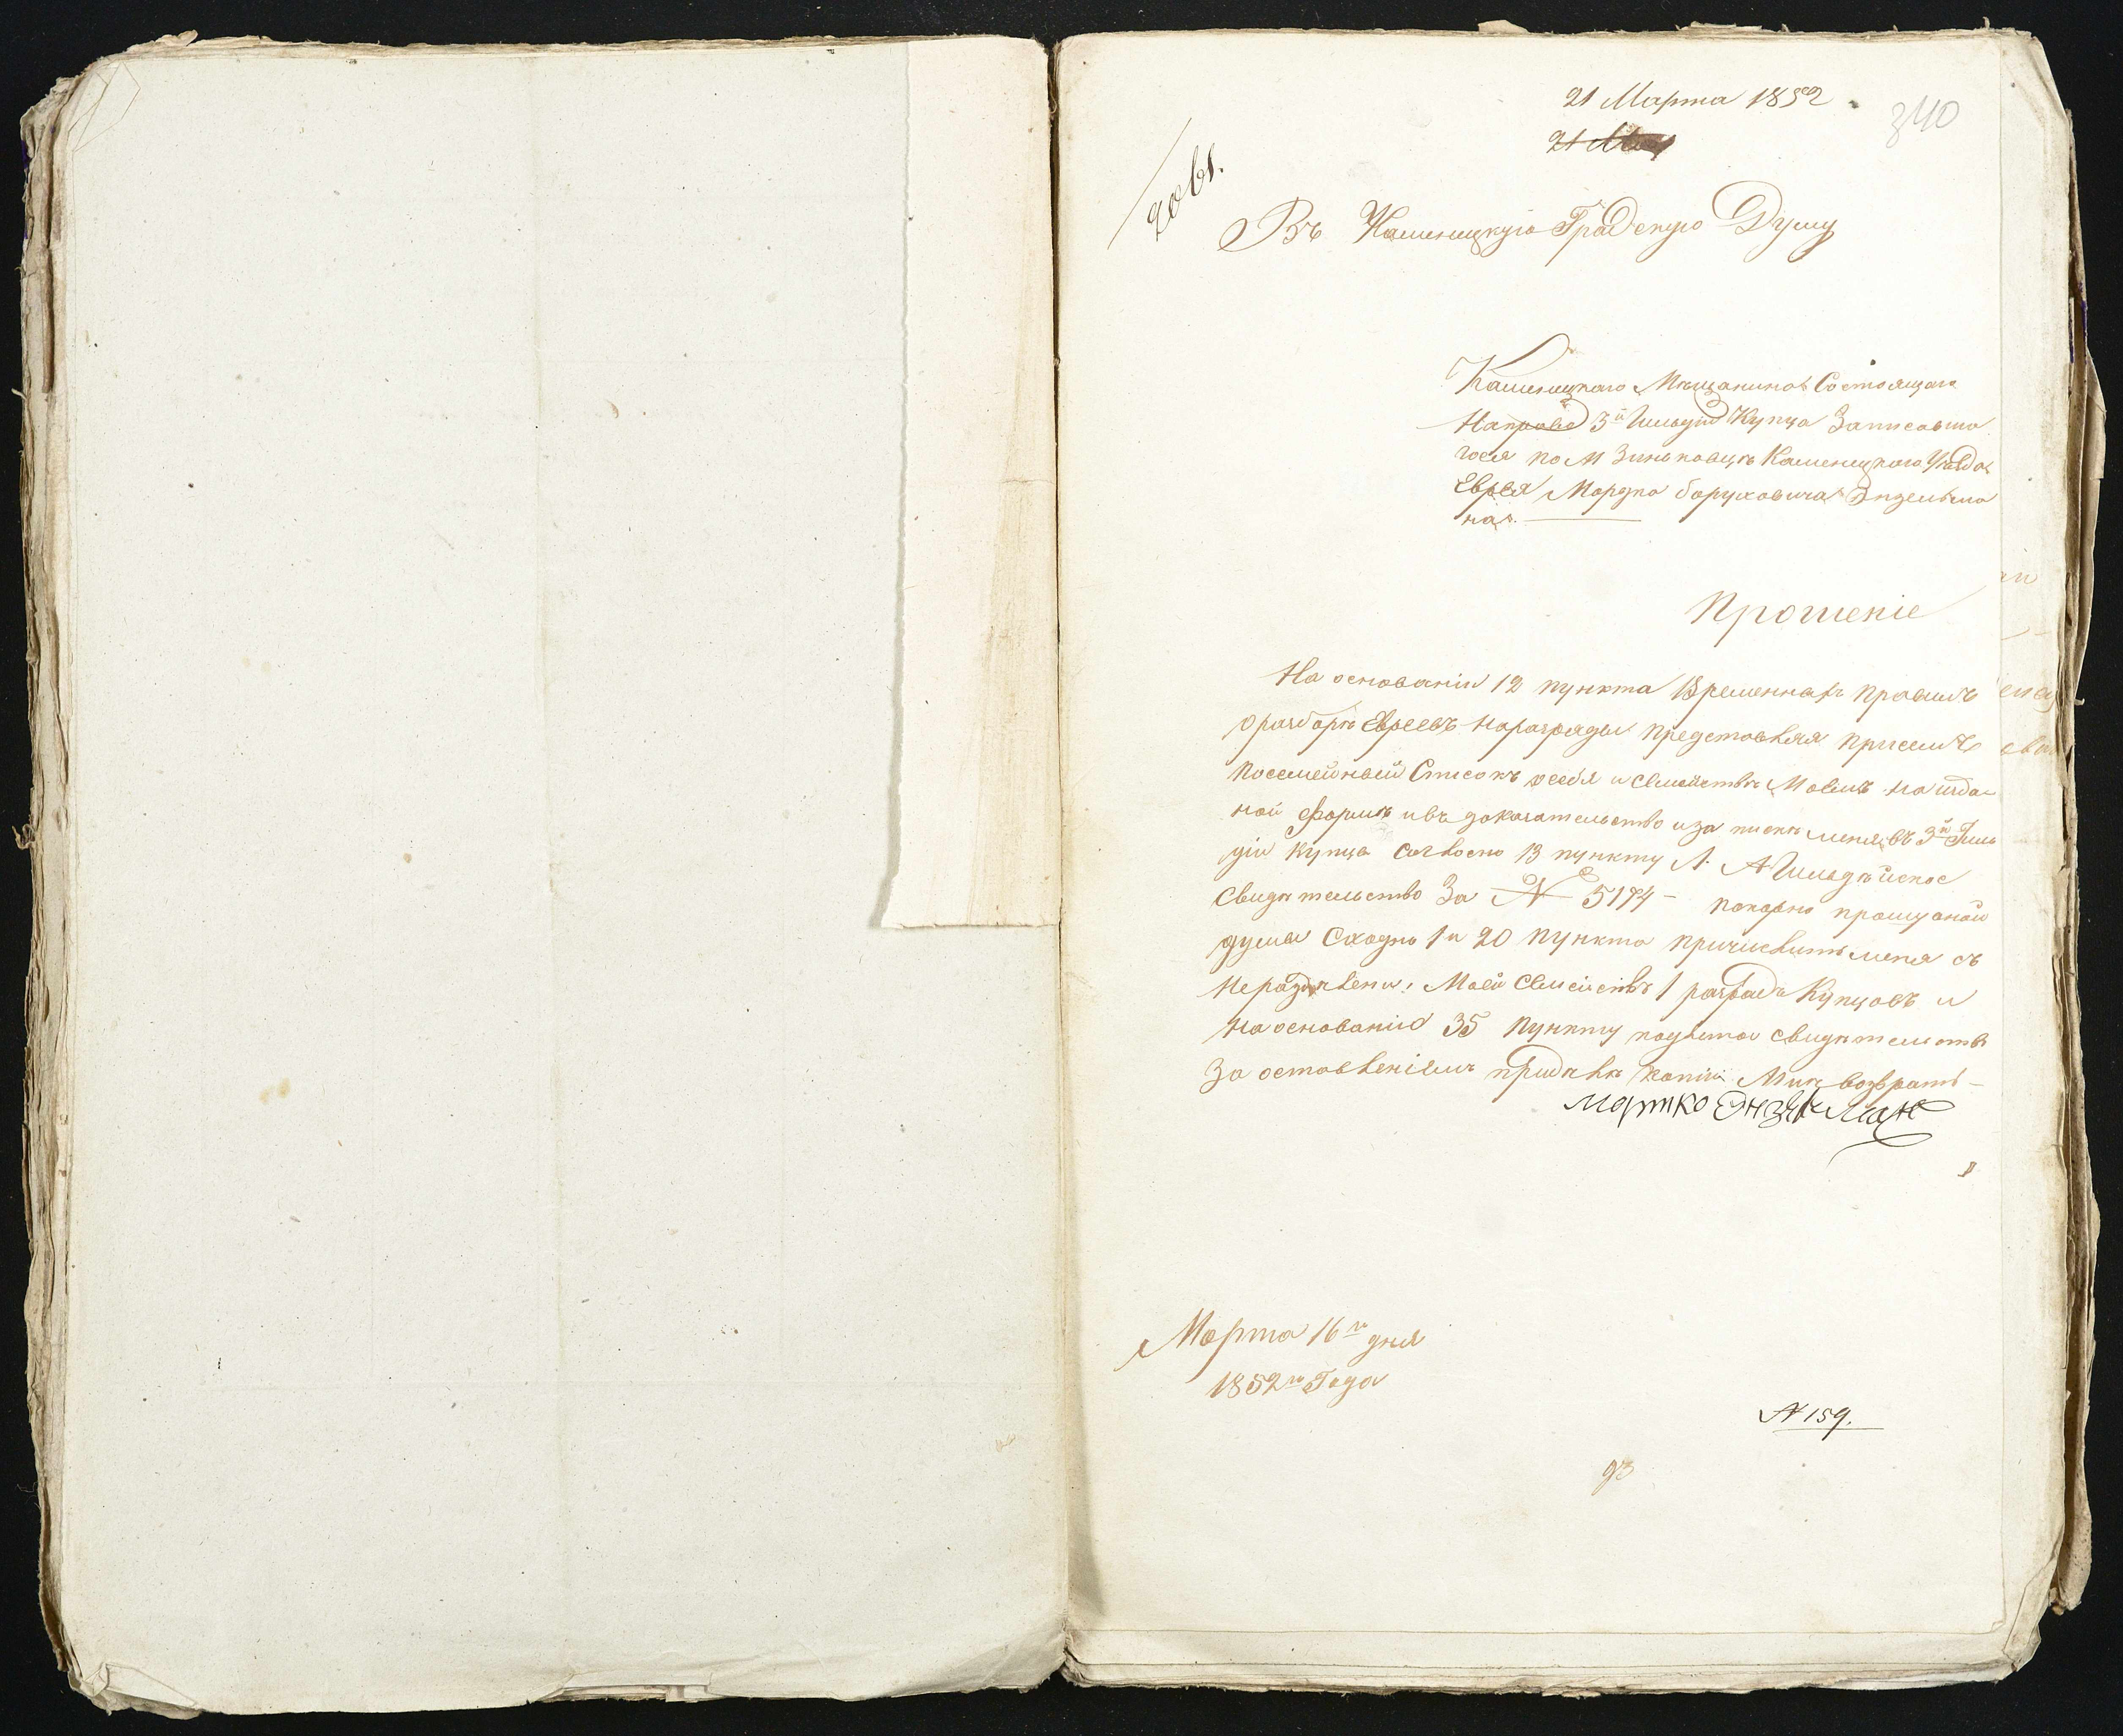 21 Марта 1852.
340
21 М
Въ Каменецкую Градскую Думу
Каменецкаго Мѣщанина Состоящаго
На правѣ 3й Гильдіи Купца Записавша
гося по М Зиньковцѣ Каменецкаго Уѣзда
Еврея Мордко Боруховича Энзельма
на.
Прошеніе
На основаніи 12 пункта Временныхъ правилъ
о разборѣ Евреевъ на разряды представляя присемъ
посемейный Списокъ о себя и семействѣ Моемъ на изда-
ной формѣ и въ доказательство и за писки меня въ 3й Гиль
діи Купца согласно 13 пункту Л. А Гильдѣйское
Свидѣтельство За № 5174 - покорно прошу оной
думы Сходно 1 и 20 пункта причислить меня съ
Нераздѣлени: Моей Семействѣ 1 разрядъ Купцовъ и
На основаніи 35 пункту подлина свидѣтельств
За оставленіемъ придѣлѣ копіи Мнѣ возврать-
мортко Энзельман
Марта 16го дня
1852го Года
№ 159.
93